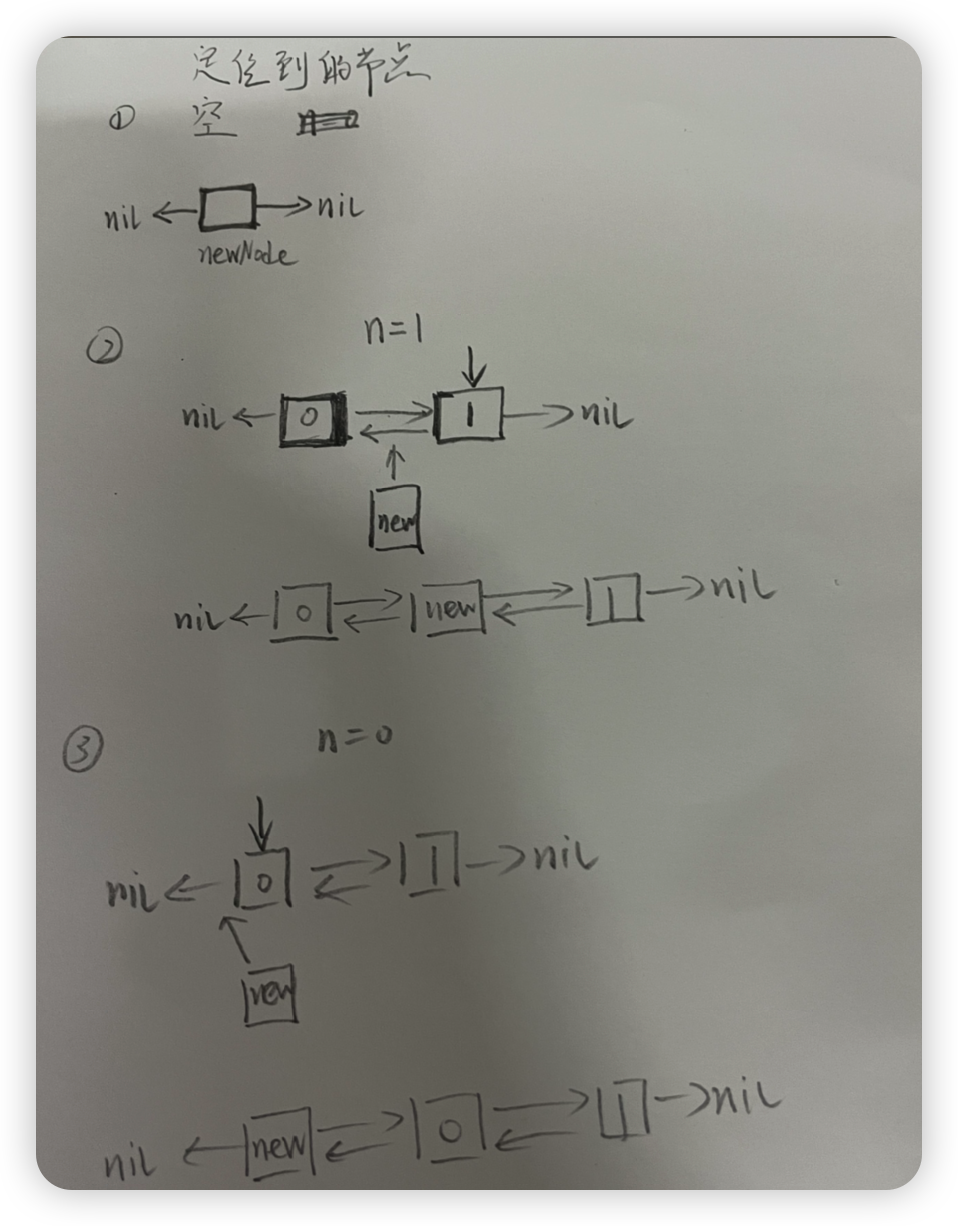 定位到的节点
① 空
nil nil
newNode
② n=1
nil 0 1 nil
new
nil 0 new 1 nil
③ n=0
nil 0 1 nil
new
nil new 0 1 nil